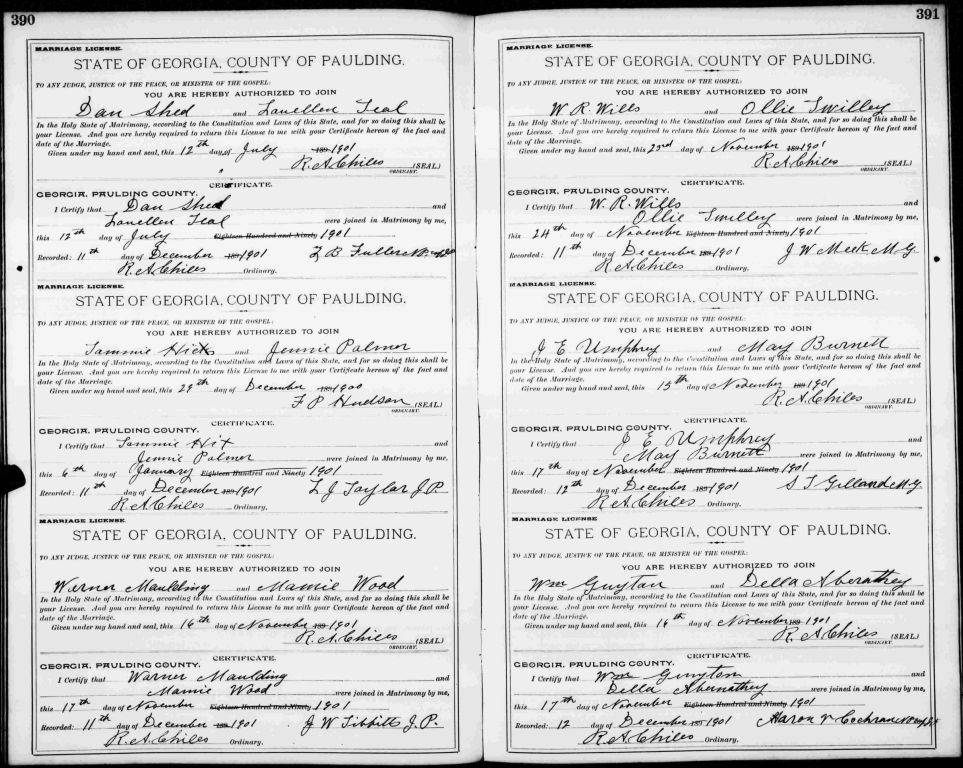 390
MARRIAGE LICENSE.
STATE OF GEORGIA, COUNTY OF PAULDING.
TO ANY JUDGE, JUSTICE OF THE PEACE, OR MINISTER OF THE GOSPEL:
YOU ARE HEREBY AUTHORIZED TO JOIN
Dan Shed and Louellen Teal
In the Holy State of Matrimony, according to the Constitution and Laws of this State, and for so doing this shall be
your License. And you are hereby required to return this License to me with your Certificate hereon of the fact and
date of the Marriage.
Given under my hand and seal, this 12th day of July 189 1901
R. A. Chiles (SEAL)
ORDINARY.
CERTIFICATE.
GEORGIA, PAULDING COUNTY.
I Certify that Dan Shed and
Louellen Teal were joined in Matrimony by me,
this 12th day of July Eighteen Hundred and Ninety 1901
Recorded: 11th day of December 189 1901 L B Fuller
R. A. Chiles Ordinary.
MARRIAGE LICENSE.
STATE OF GEORGIA, COUNTY OF PAULDING.
TO ANY JUDGE, JUSTICE OF THE PEACE, OR MINISTER OF THE GOSPEL:
YOU ARE HEREBY AUTHORIZED TO JOIN
Tammie Hicks and Jennie Palmer
In the Holy State of Matrimony, according to the Constitution and Laws of this State, and for so doing this shall be
your License. And you are hereby required to return this License to me with your Certificate hereon of the fact and
date of the Marriage.
Given under my hand and seal, this 29th day of December 189 1900
F P Hudson (SEAL)
ORDINARY.
CERTIFICATE.
GEORGIA, PAULDING COUNTY.
I Certify that Tammie Hix and
Jennie Palmer were joined in Matrimony by me,
this 6th day of January Eighteen Hundred and Ninety 1901
Recorded: 11th day of December 189 1901 L J Taylor J.P.
R. A. Chiles Ordinary.
MARRIAGE LICENSE
STATE OF GEORGIA, COUNTY OF PAULDING.
TO ANY JUDGE, JUSTICE OF THE PEACE, OR MINISTER OF THE GOSPEL:
YOU ARE HEREBY AUTHORIZED TO JOIN
Warner Maulding and Mamie Wood
In the Holy State of Matrimony, according to the Constitution and Laws of this State, and for so doing this shall be
your License. And you are hereby required to return this License to me with your Certificate hereon of the fact and
date of the Marriage.
Given under my hand and seal, this 16th day of November 189 1901
R. A. Chiles (SEAL)
ORDINARY.
CERTIFICATE.
GEORGIA, PAULDING COUNTY.
I Certify that Warner Maulding and
Mamie Wood were joined in Matrimony by me,
this 17th day of November Eighteen Hundred and Ninety 1901
Recorded: 11th day of December 189 1901 J W Tibbitts J.P.
R. A. Chiles Ordinary.
391
MARRIAGE LICENSE.
STATE OF GEORGIA, COUNTY OF PAULDING.
TO ANY JUDGE, JUSTICE OF THE PEACE, OR MINISTER OF THE GOSPEL:
YOU ARE HEREBY AUTHORIZED TO JOIN
W. R. Wills and Ollie Swilley
In the Holy State of Matrimony, according to the Constitution and Laws of this State, and for so doing this shall be
your License. And you are hereby required to return this License to me with your Certificate hereon of the fact and
date of the Marriage.
Given under my hand and seal, this 23rd day of November 189 1901
R. A. Chiles (SEAL)
ORDINARY.
CERTIFICATE.
GEORGIA, PAULDING COUNTY.
I Certify that W. R. Wills and
Ollie Swilley were joined in Matrimony by me,
this 24th day of November Eighteen Hundred and Ninety 1901
Recorded: 11th day of December 189 1901 J W Meek M.G.
R. A. Chiles Ordinary.
MARRIAGE LICENSE
STATE OF GEORGIA, COUNTY OF PAULDING.
TO ANY JUDGE, JUSTICE OF THE PEACE, OR MINISTER OF THE GOSPEL:
YOU ARE HEREBY AUTHORIZED TO JOIN
J E Umphrey and May Burnett
In the Holy State of Matrimony, according to the Constitution and Laws of this State, and for so doing this shall be
your License. And you are hereby required to return this License to me with your Certificate hereon of the fact and
date of the Marriage.
Given under my hand and seal, this 15th day of November 189 1901
R. A. Chiles (SEAL)
ORDINARY.
CERTIFICATE.
GEORGIA, PAULDING COUNTY.
I Certify that J E Umphrey and
May Burnett were joined in Matrimony by me,
this 17th day of November Eighteen Hundred and Ninety 1901
Recorded: 12th day of December 189 1901 S T Gilland M.G.
R. A. Chiles Ordinary.
MARRIAGE LICENSE
STATE OF GEORGIA, COUNTY OF PAULDING.
TO ANY JUDGE, JUSTICE OF THE PEACE, OR MINISTER OF THE GOSPEL:
YOU ARE HEREBY AUTHORIZED TO JOIN
Wm Guyton and Della Aberathey
In the Holy State of Matrimony, according to the Constitution and Laws of this State, and for so doing this shall be
your License. And you are hereby required to return this License to me with your Certificate hereon of the fact and
date of the Marriage.
Given under my hand and seal, this 16th day of November 189 1901
R. A. Chiles (SEAL)
ORDINARY.
CERTIFICATE.
GEORGIA, PAULDING COUNTY.
I Certify that Wm Guyton and
Della Abernathey were joined in Matrimony by me,
this 17th day of November Eighteen Hundred and Ninety 1901
Recorded: 12 day of December 189 1901 Aaron V Cochran
R. A. Chiles Ordinary.